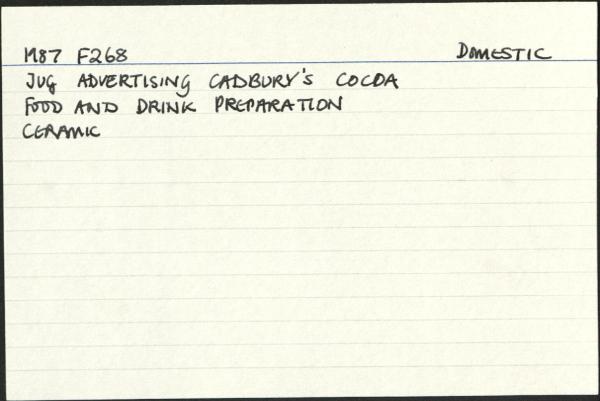 M87 F268 DOMESTIC
JUG ADVERTISING CADBURY'S COCOA
FOOD AND DRINK PREPARATION
CERAMIC